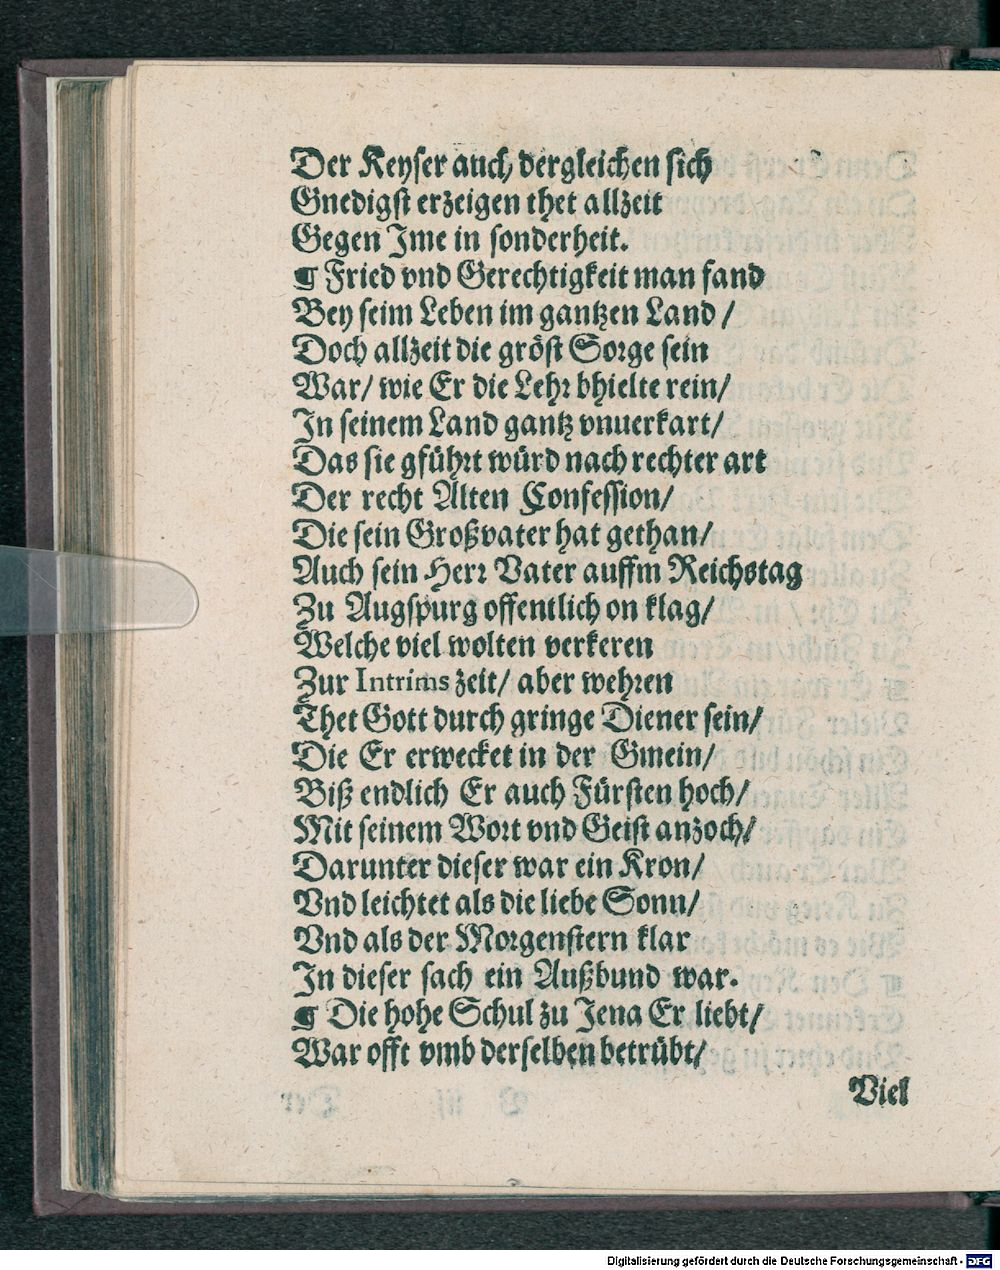 Der Keyser auch dergleichen sich
Gnedigst erzeigen thet allzeit
Gegen Jme in sonderheit.
¶ Fried vnd Gerechtigkeit man fand
Bey seim Leben im gantzen Land /
Doch allzeit die gröst Sorge sein
War / wie Er die Lehr bhielte rein /
In seinem Land gantz vnuerkart /
Das sie gführt würd nach rechter art
Der recht Alten Confession /
Die sein Großvater hat gethan /
Auch sein Herr Vater auffm Reichstag
Zu Augspurg offentlich on klag /
Welche viel wolten verkeren
Zur Intrims zeit / aber wehren
Thet Gott durch gringe Diener sein /
Die Er erwecket in der Gmein /
Biß endlich Er auch Fürsten hoch /
Mit seinem Wort vnd Geist anzoch /
Darunter dieser war ein Kron /
Vnd leichtet als die liebe Sonn /
Vnd als der Morgenstern klar
In dieser sach ein Außbund war.
¶ Die hohe Schul zu Jena Er liebt /
War offt vmb derselben betrübt /
Viel
Digitalisierung gefördert durch die Deutsche Forschungsgemeinschaft - DFG